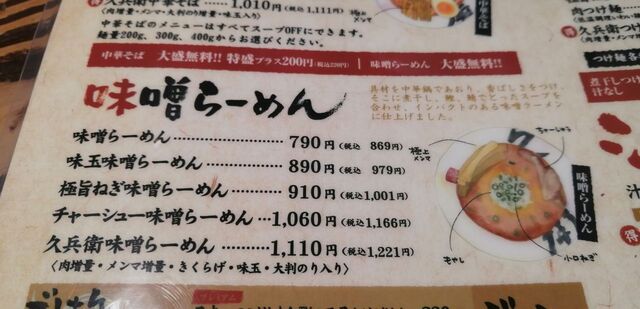 得 久兵衛中華そば……1,010円(税込1,111円)
(肉増量・メンマ・大判のり増量・味玉入り)
中華そばのメニューはすべてスープOFFにできます。
麺量200g、300g、400gからお選びください。
極上メンマ
中華そば
肉つけ麺
久兵衛つ
(肉増量・メンマ
中華そば 大盛無料!! 特盛プラス200円(税込220円) 味噌らーめん 大盛無料!!
つけ麺各
煮干しつけ
汁なし
味噌らーめん
具材を中華鍋であおり、香ばしさをつけ、
そこに煮干し、鰹、鯖でとったスープを
合わせ、インパクトのある味噌ラーメン
に仕上げました。
味噌らーめん……790円(税込 869円)
味玉味噌らーめん……890円(税込 979円)
極旨ねぎ味噌らーめん……910円(税込1,001円)
チャーシュー味噌らーめん…1,060円(税込1,166円)
久兵衛味噌らーめん……1,110円(税込1,221円)
(肉増量・メンマ増量・きくらげ・味玉・大判のり入り)
ちゃーしゅう
極上メンマ
味噌らーめん
もやし
小口ねぎ
汁
得
プレミアム